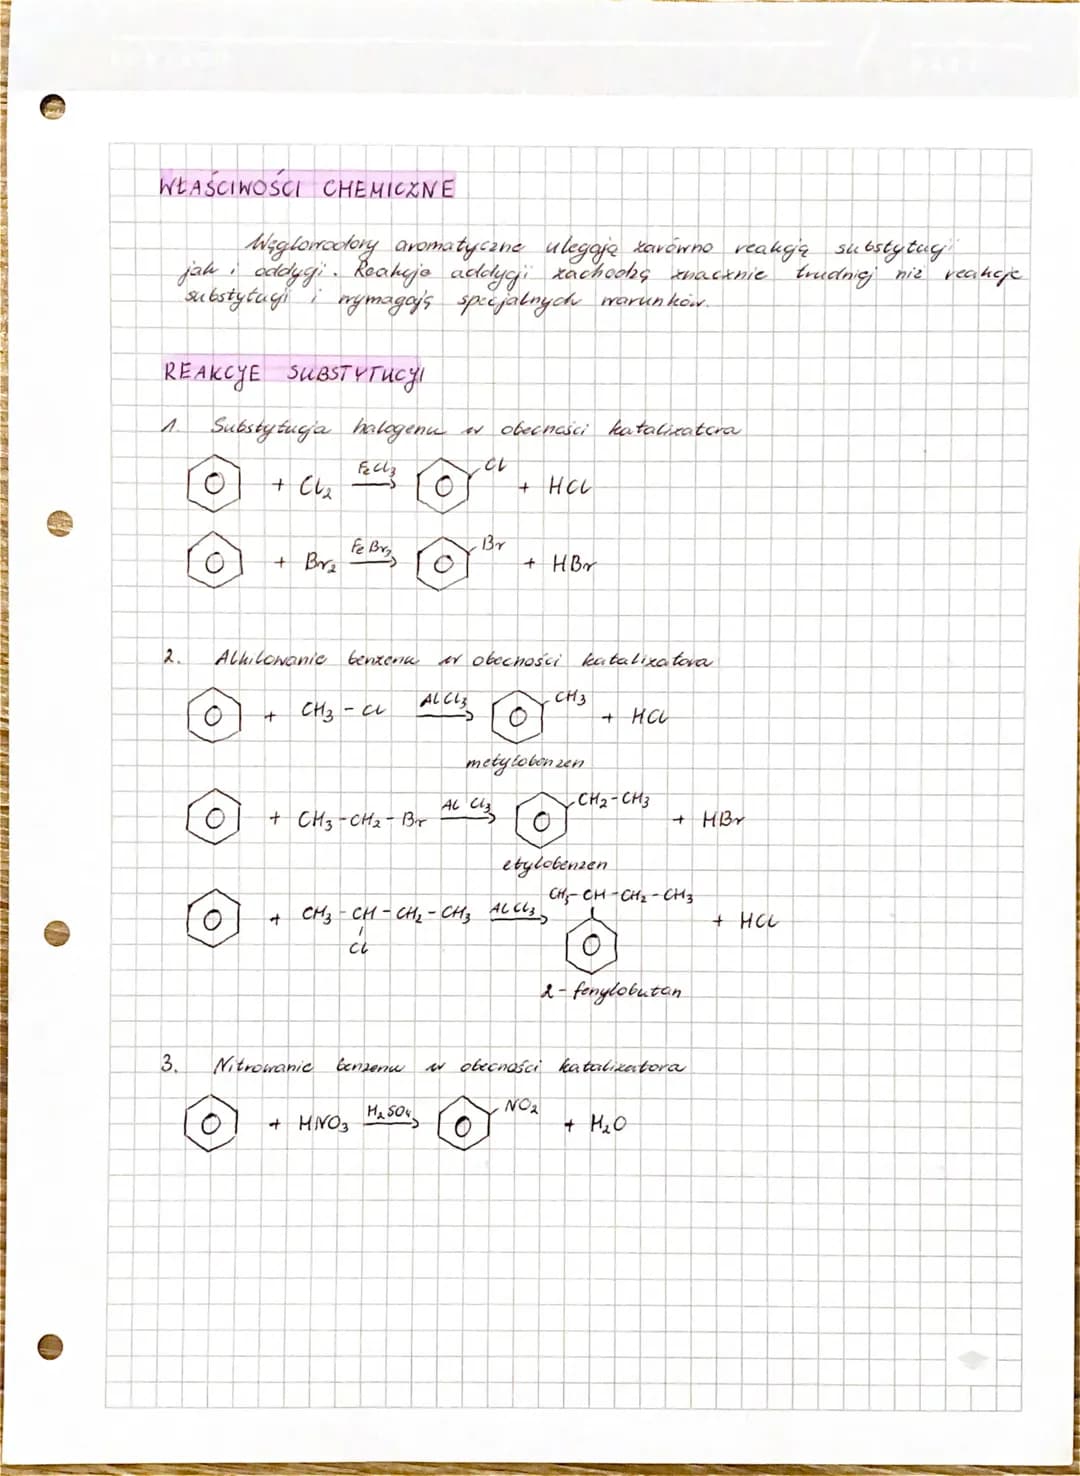 WŁAŚCIWOŚCI CHEMICZNE
Węglowodory aromatyczne ulegają zarówno reakcją substytucji
jak i addycji. Reakcje addycji zachodzą znacznie trudniej niż reakcje
substytucji i wymagają specjalnych warunków.
REAKCJE SUBSTYTUCJI
1. Substytucja halogenu w obecności katalizatora
+ Cl₂ FeCl₃ Cl + HCl
+ Br₂ FeBr₃ Br + HBr
2. Alkilowanie benzenu w obecności katalizatora
+ CH₃ - Cl AlCl₃ CH₃ + HCl
metylobenzen
+ CH₃-CH₂-Br AlCl₃ CH₂-CH₃ + HBr
etylobenzen
+ CH₃-CH-CH₂-CH₃ AlCl₃ CH₃-CH-CH₂-CH₃ + HCl
Cl
2-fenylobutan
3. Nitrowanie benzenu w obecności katalizatora
+ HNO₃ H₂SO₄ NO₂ + H₂O